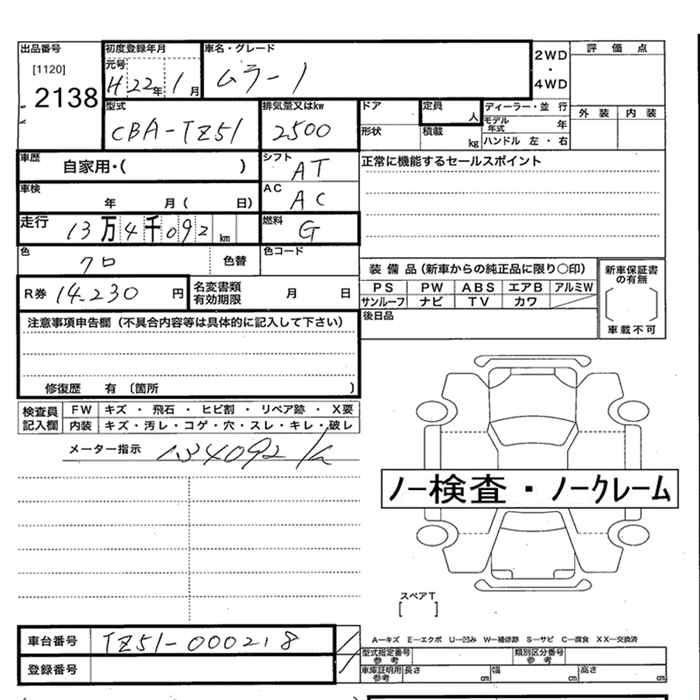 出品番号
[1120]
2138
初度登録年月
元号
H 22年 1月
車名・グレード
ムラーノ
2WD
・
4WD
評価点
外装 内装
型式
CBA-TZ51
排気量又はkw
2500
ドア
形状
定員
人
積載
kg
ディーラー・並行
モデル年式 年
ハンドル 左・右
車歴
自家用・( )
シフト
AT
正常に機能するセールスポイント
車検
年 月( 日)
AC
AC
走行
13万4千092km
燃料
G
色
クロ
色替
色コード
装備品(新車からの純正品に限り○印)
PS PW ABS エアB アルミW
サンルーフ ナビ TV カワ
新車保証書の有無
車載不可
R券 14.230円
名変書類有効期限 月 日
後日品
注意事項申告欄(不具合内容等は具体的に記入して下さい)
修復歴 有 〔箇所 〕
検査員記入欄
FW キズ・飛石・ヒビ割・リペア跡・X要
内装 キズ・汚レ・コゲ・穴・スレ・キレ・破レ
メーター指示 134092
ノー検査・ノークレーム
スペアT
[ ]
車台番号 TZ51-000218
登録番号
A―キズ E―エクボ U―凹み W―補修跡 S―サビ C―腐食 XX―交換済
型式指定番号
参考
類別区分番号
参考
車庫証明用
参考
長さ cm 幅 cm 高さ cm